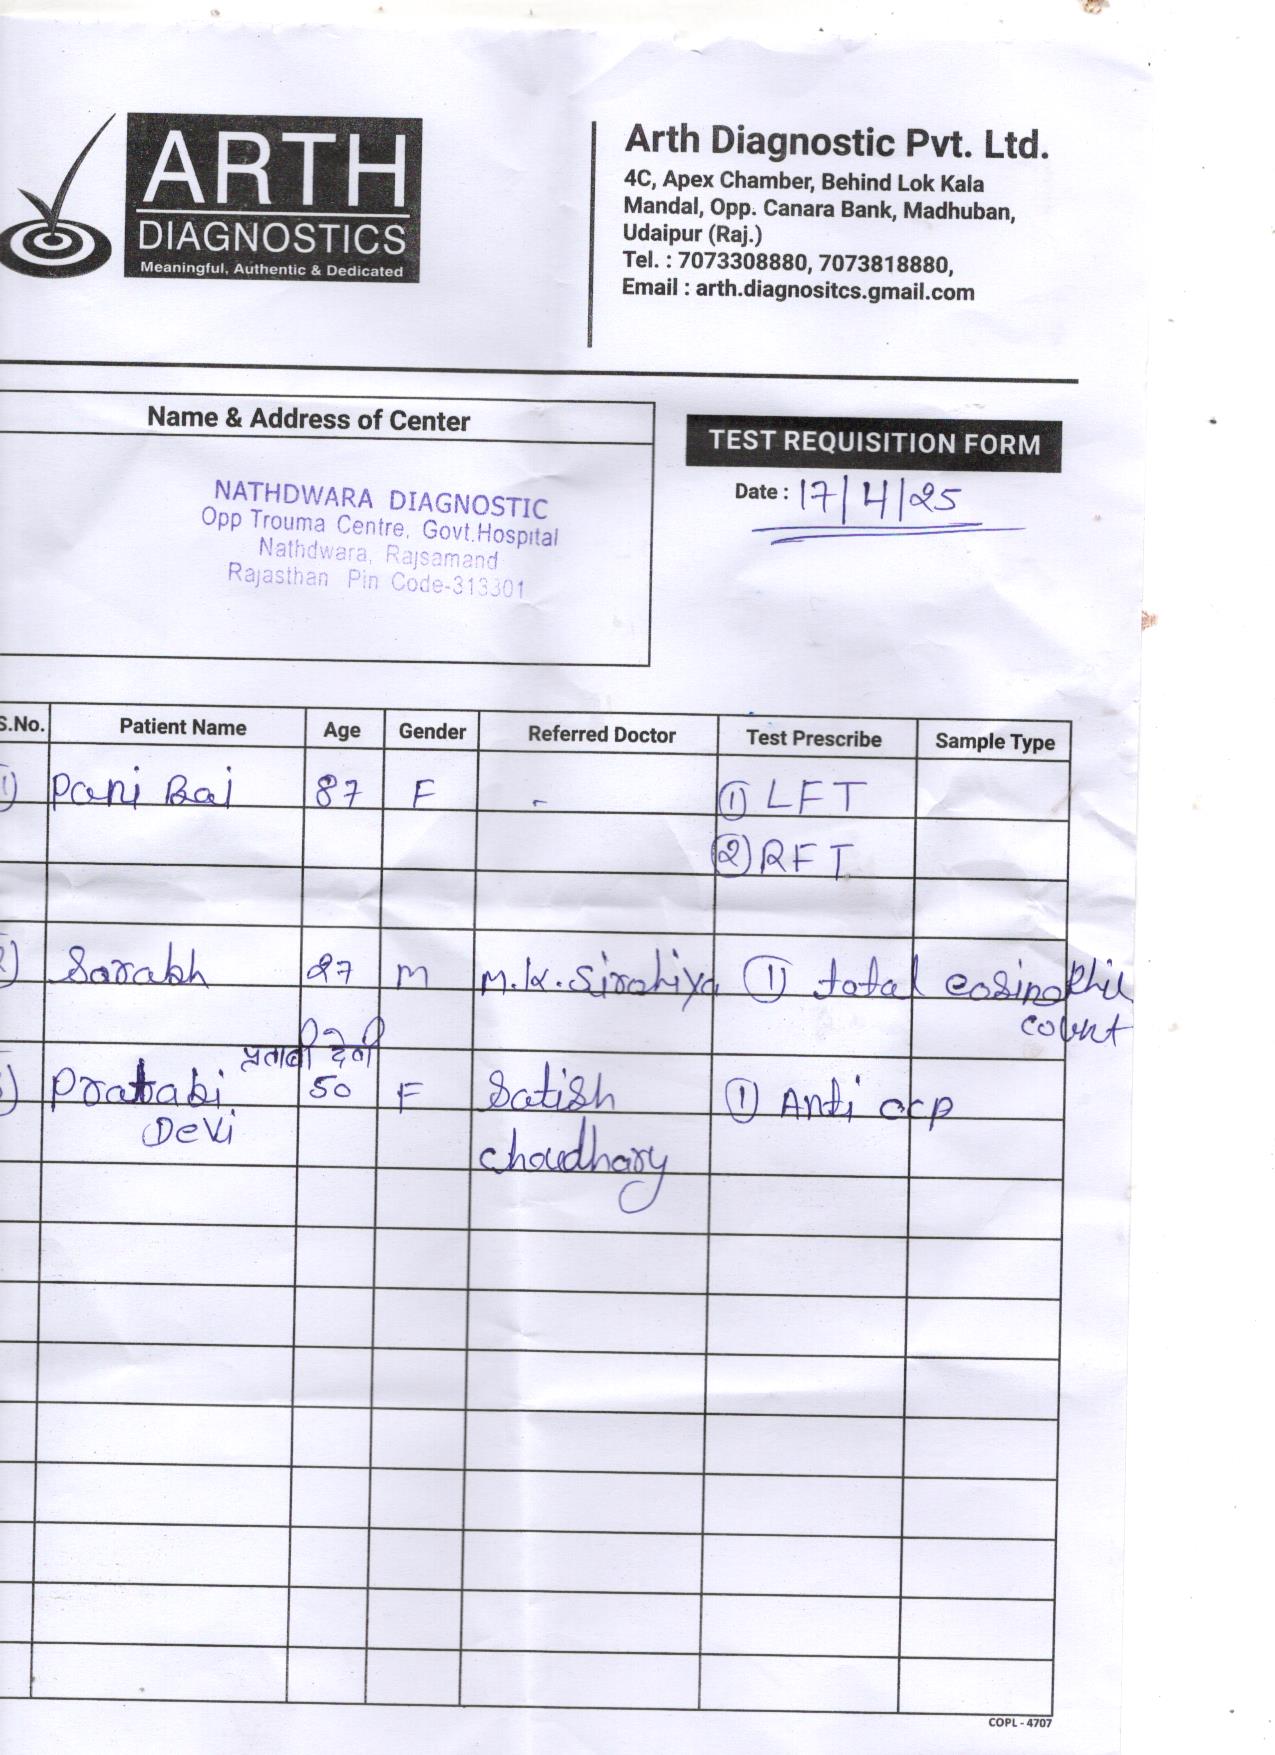 ARTH
DIAGNOSTICS
Meaningful, Authentic & Dedicated
Arth Diagnostic Pvt. Ltd.
4C, Apex Chamber, Behind Lok Kala
Mandal, Opp. Canara Bank, Madhuban,
Udaipur (Raj.)
Tel. : 7073308880, 7073818880,
Email : arth.diagnositcs.gmail.com
Name & Address of Center
NATHDWARA DIAGNOSTIC
Opp Trouma Centre, Govt.Hospital
Nathdwara, Rajsamand
Rajasthan Pin Code-313301
TEST REQUISITION FORM
Date : 17/4/25
S.No. Patient Name Age Gender Referred Doctor Test Prescribe Sample Type
1) Pani Bai 87 F - ① LFT
② RFT
2) Sarabh 27 M M.K. Sirohiya ① total eosinophil
count
प्रताबी देवी
3) Pratabi 50 F Satish ① Anti ccp
Devi
choudhary
COPL - 4707